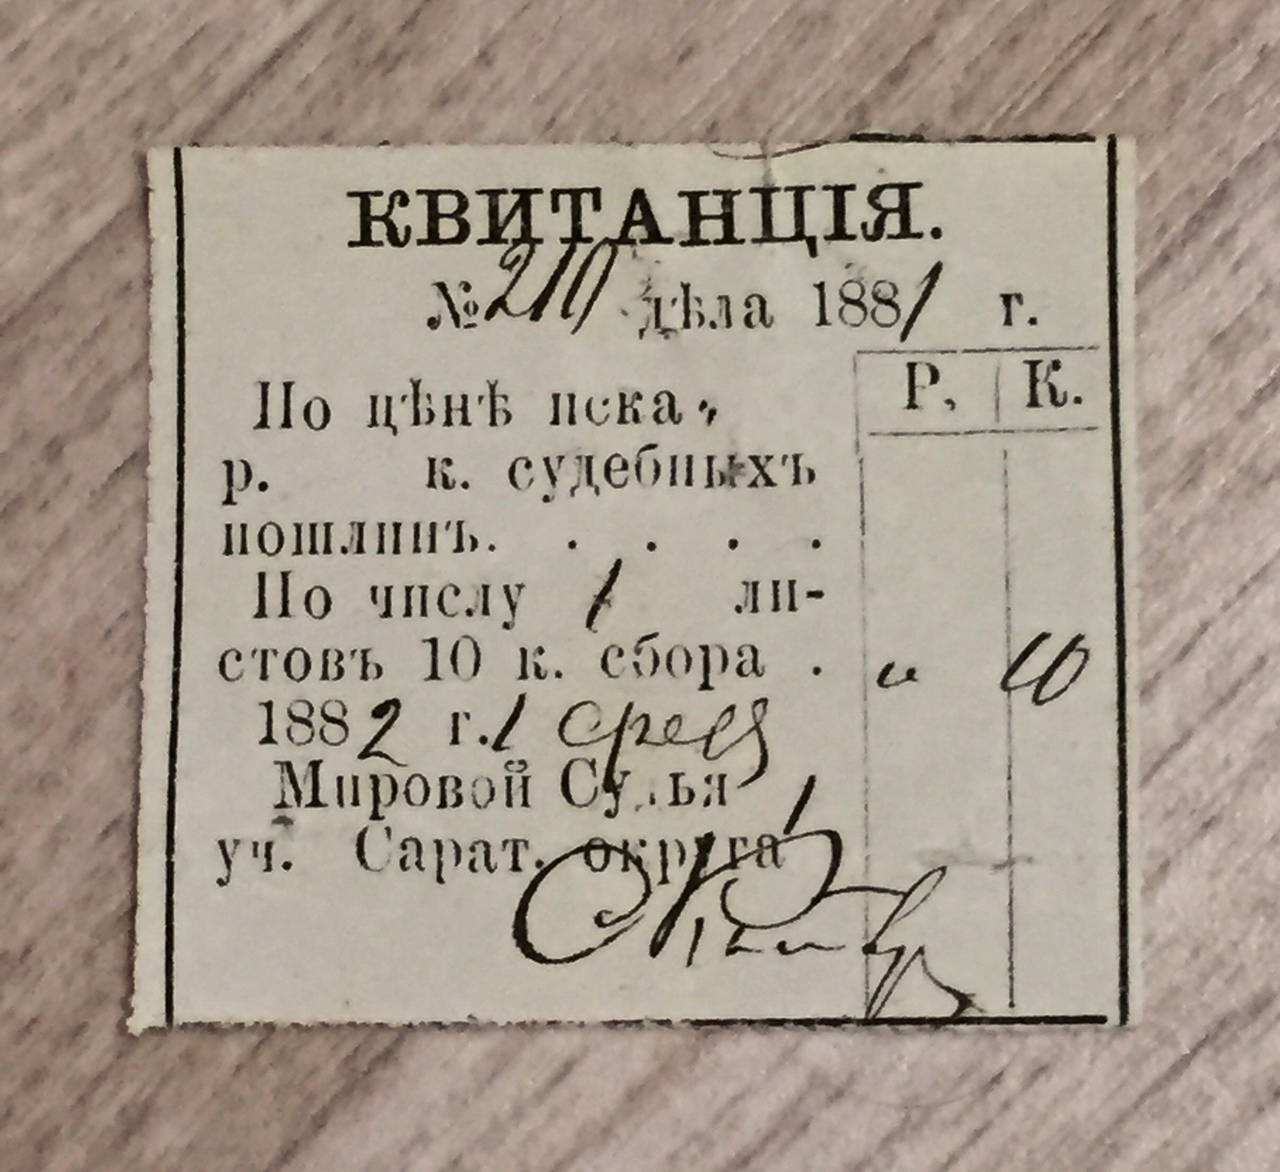 КВИТАНЦІЯ.
№ 210 дѣла 1881 г.
Р. К.
По цѣнѣ иска
р. к. судебныхъ
пошлинъ. . . . .
По числу 1 ли-
стовъ 10 к. сбора . „ 10
1882 г. 1
Мировой Судья 1
уч. Сарат. округа